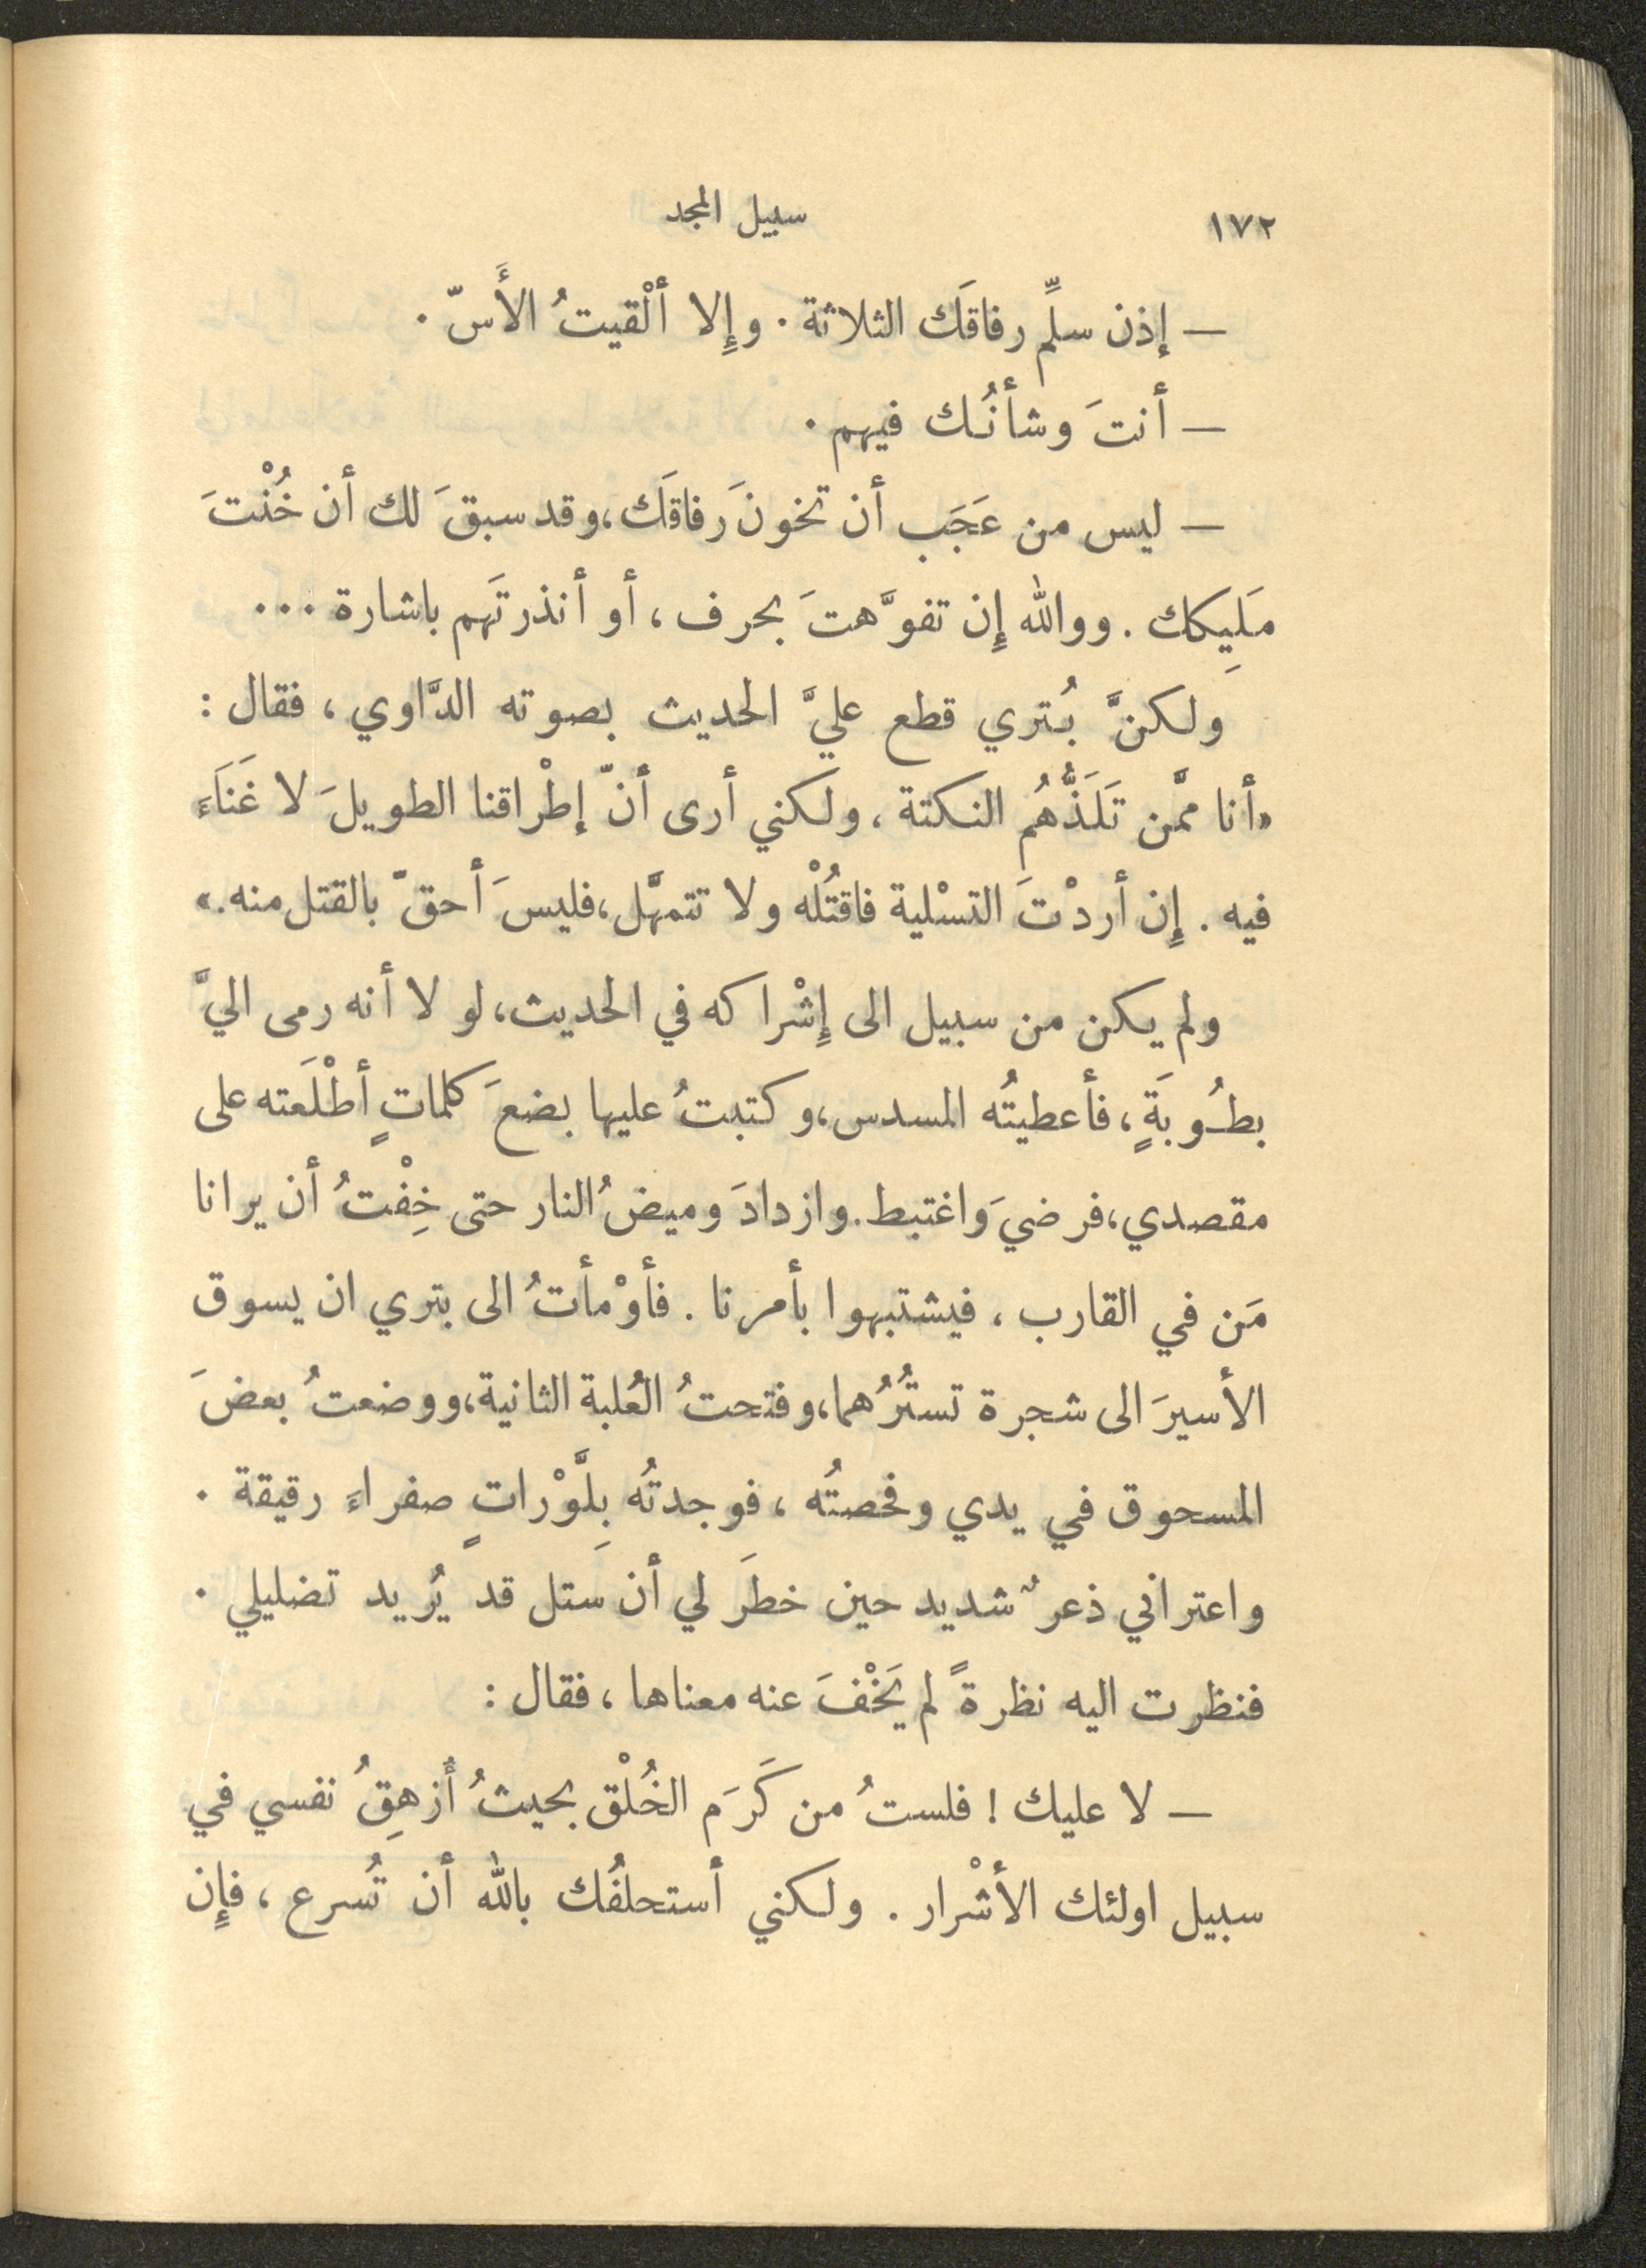 ١٧٢ سبيل المجد
— إذن سلِّم رفاقَك الثلاثة . وإِلا ألْقيتُ الأَسّ .
— أنتَ وشأنُك فيهم .
— ليس من عَجَب أن تخونَ رفاقَك ، وقد سبقَ لك أن خُنْتَ
مَلِيكك . ووالله إِن تفوَّهتَ بحرف ، أو أنذرتَهم باشارة ...
ولكنَّ بُتري قطع عليَّ الحديث بصوته الدَّاوي ، فقال :
«أنا ممَّن تَلَذُّهُم النكتة ، ولكني أرى أنّ إطْراقنا الطويلَ لا غَنَاءَ
فيه . إِن أردْتَ التسْلية فاقتُلْه ولا تتمهَّل ، فليسَ أحقّ بالقتل منه .»
ولم يكن من سبيل الى إِشْراكه في الحديث ، لولا أنه رمى اليَّ
بطُوبَةٍ ، فأعطيتُه المسدس ، وكتبتُ عليها بضعَ كلماتٍ أطْلَعته على
مقصدي ، فرضيَ واغتبط . وازدادَ وميضُ النار حتى خِفْتُ أن يرانا
مَن في القارب ، فيشتبهوا بأمرنا . فأوْمأتُ الى بتري ان يسوق
الأسيرَ الى شجرة تستُرُهما ، وفتحتُ العُلبة الثانية ، ووضعتُ بعضَ
المسحوق في يدي وفحصتُه ، فوجدتُه بِلَّوْراتٍ صفراءَ رقيقة .
واعتراني ذعرٌ شديد حين خطرَ لي أن ستل قد يُريد تضليلي .
فنظرت اليه نظرةً لم يَخْفَ عنه معناها ، فقال :
— لا عليك ! فلستُ من كَرَم الخُلْق بحيثُ أُزهِقُ نفسي في
سبيل اولئك الأشْرار . ولكني أستحلفُك بالله أن تُسرع ، فإِن